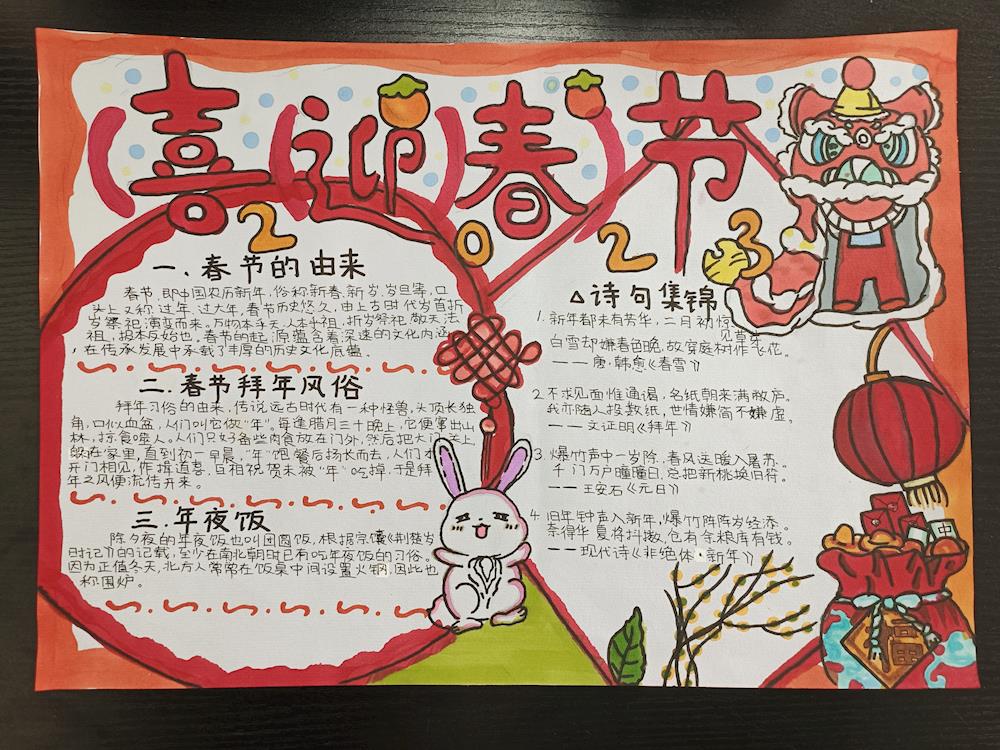 喜迎春节
2023
一、春节的由来
春节,即中国农历新年,俗称新春、新岁、岁旦等,口
头上又称过年、过大年。春节历史悠久,由上古时代岁首祈
岁祭祀演变而来。万物本乎天、人本乎祖,祈岁祭祀、敬天法
祖,报本反始也。春节的起源蕴含着深邃的文化内涵
,在传承发展中承载了丰厚的历史文化底蕴。
二、春节拜年风俗
拜年习俗的由来,传说远古时代有一种怪兽,头顶长独
角,口似血盆,人们叫它做“年”。每逢腊月三十晚上,它便窜出山
林,掠食噬人。人们只好备些肉食放在门外,然后把大门关上,
躲在家里,直到初一早晨,“年”饱餐后扬长而去,人们才
开门相见,作揖道喜,互相祝贺未被“年”吃掉,于是拜
年之风便流传开来。
三、年夜饭
除夕夜的年夜饭也叫团圆饭,根据宗懔《荆楚岁
时记》的记载,至少在南北朝时已有吃年夜饭的习俗。
因为正值冬天,北方人常常在饭桌中间设置火锅,因此也
称围炉。
△诗句集锦
1. 新年都未有芳华,二月初惊
见草芽。
白雪却嫌春色晚,故穿庭树作飞花。
——唐·韩愈《春雪》
2. 不求见面惟通谒,名纸朝来满敝庐。
我亦随人投数纸,世情嫌简不嫌虚。
——文证明《拜年》
3. 爆竹声中一岁除,春风送暖入屠苏。
千门万户曈曈日,总把新桃换旧符。
——王安石《元日》
4. 旧年钟声入新年,爆竹阵阵岁经添。
奈得华夏将抖擞,仓有余粮库有钱。
——现代诗《非绝体·新年》